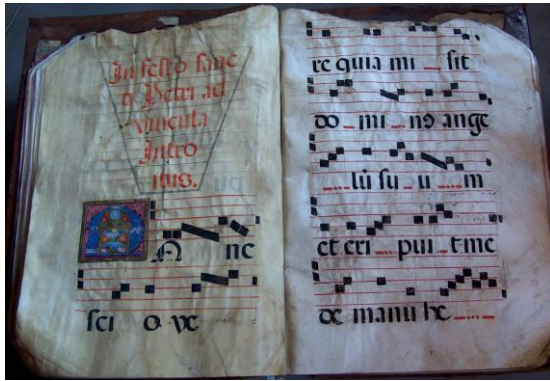 In festo sanc
ti Petri ad
vincula
Intro
itus.
Nunc
scio ve
re quia mi sit
do mi nus ange
lū su u m
et eri pui t me
de manu he